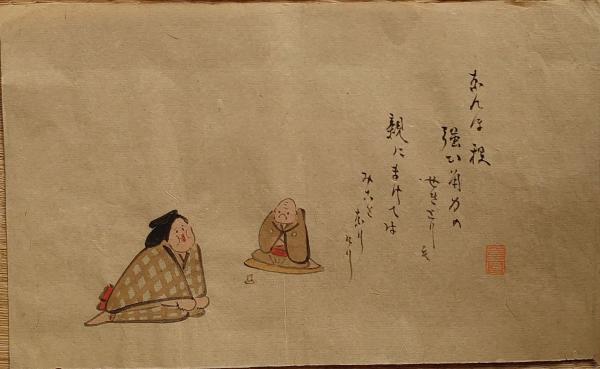 なんほ程
強ひ角力の
せきとりも
親にまけては
みこと
なり
けり